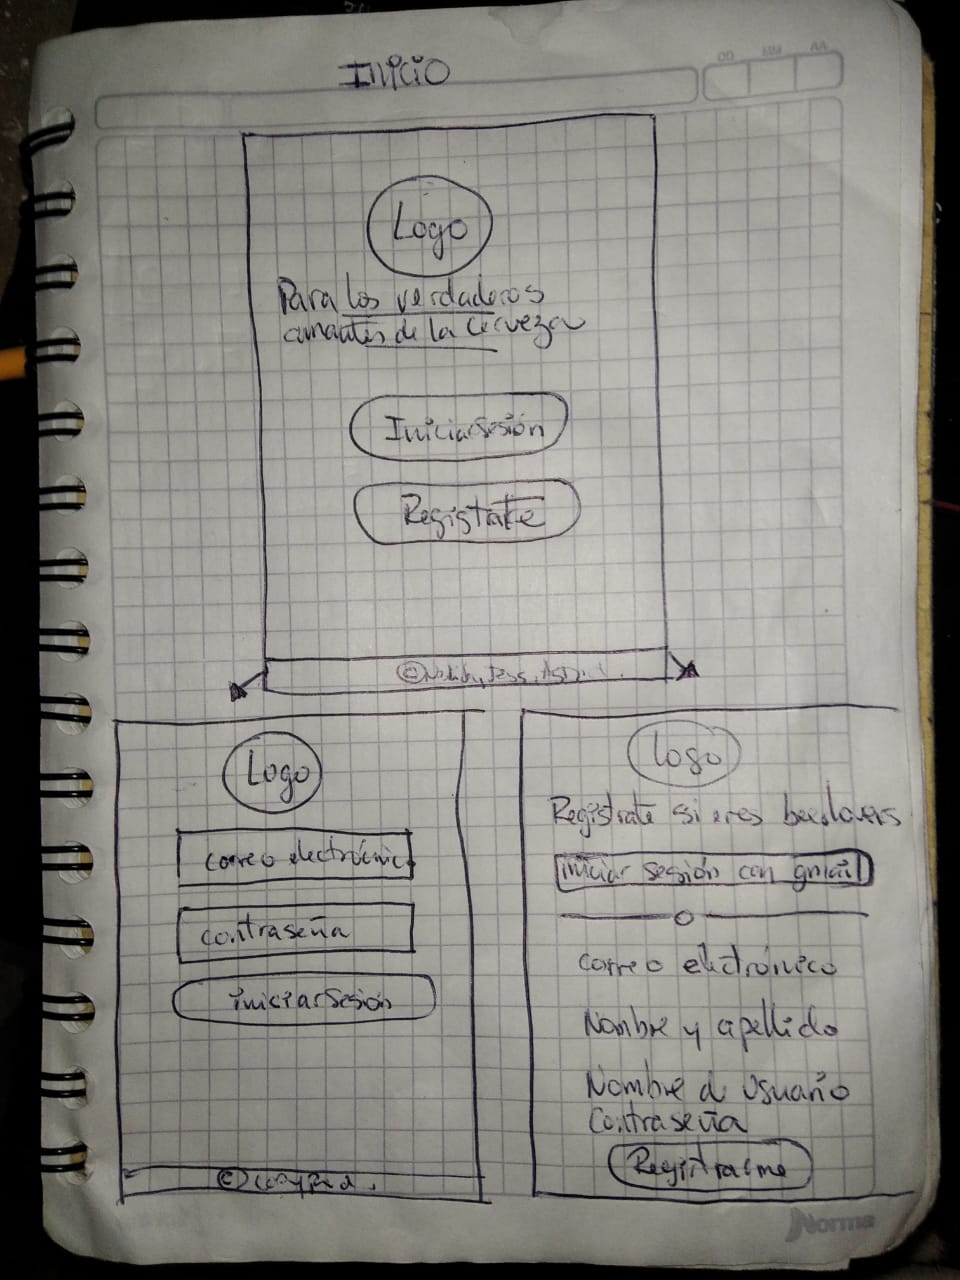 Inicio
DD MM AA
Logo
Para los verdaderos
amantes de la cerveza
Iniciar sesión
Registrate
©
Logo
correo electrónic
contraseña
iniciar sesión
©
Logo
Registrate si eres beerlovers
iniciar sesión con gmail
o
correo electrónico
Nombre y apellido
Nombre d Usuario
Contraseña
Registrarme
Norma